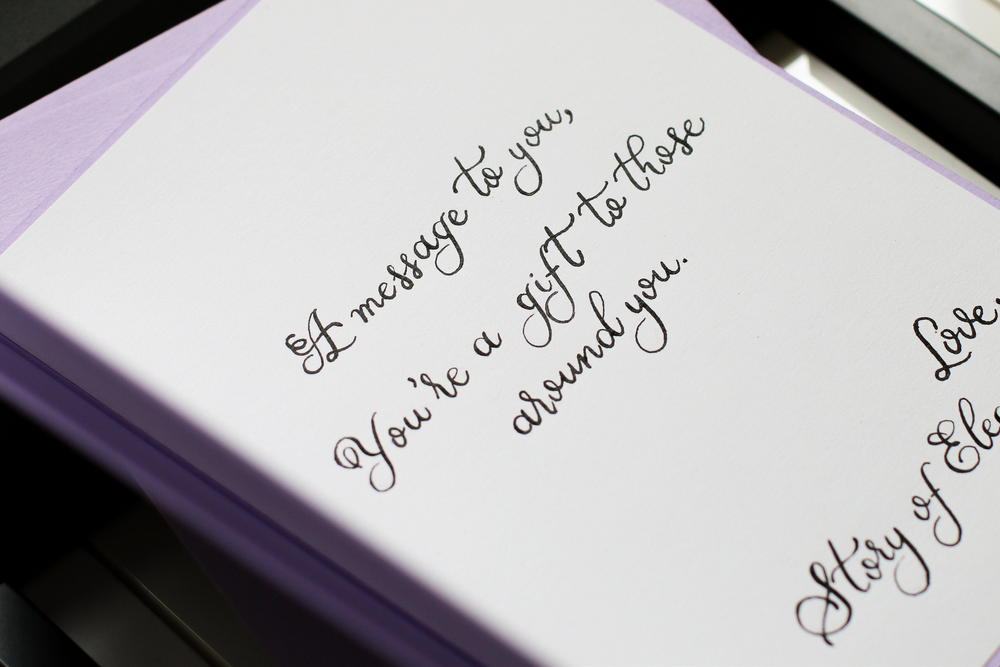 A message to you,
You're a gift to those
around you.
Love,
Story of